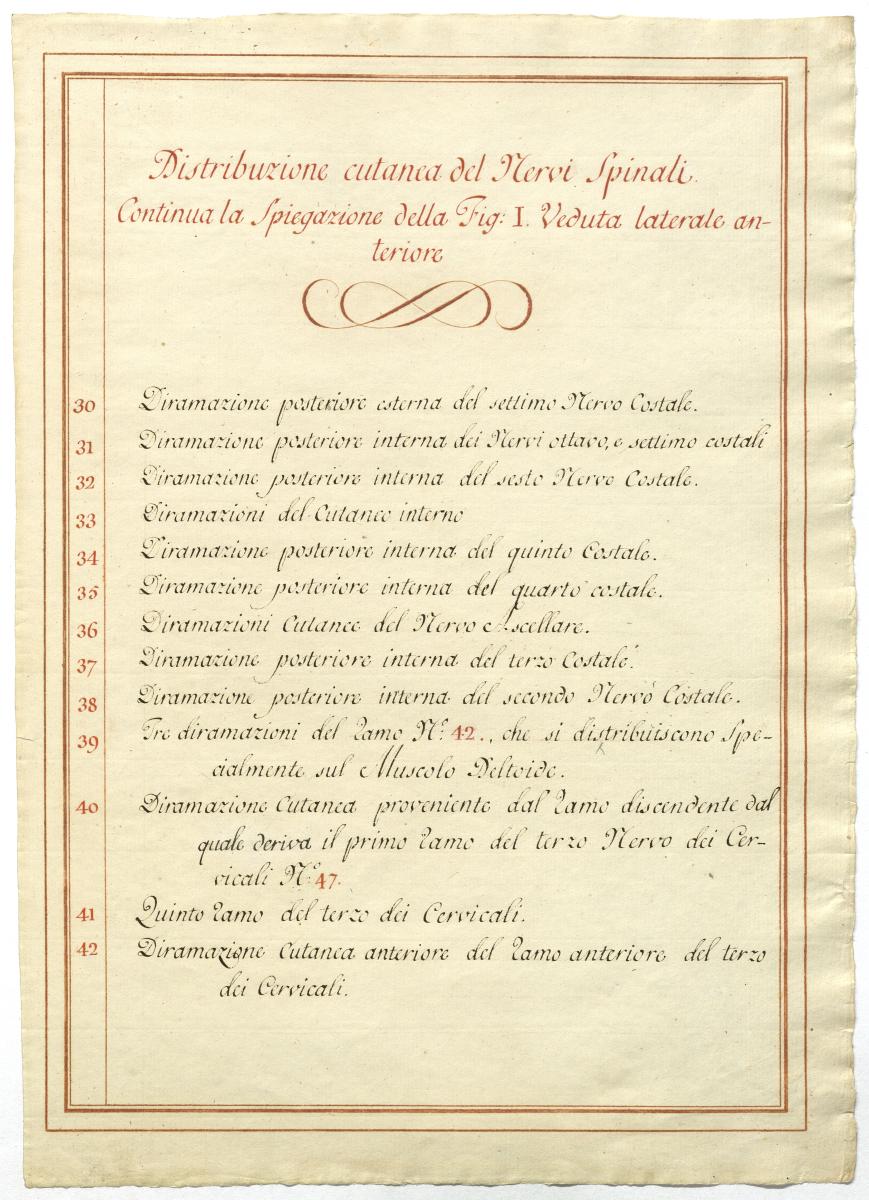 Distribuzione cutanea del Nervi Spinali.
Continua la Spiegazione della Fig: I. Veduta laterale an-
teriore
30 Diramazione posteriore esterna del settimo Nervo Costale.
31 Diramazione posteriore interna dei Nervi ottavo, e settimo costali
32 Diramazione posteriore interna del sesto Nervo Costale.
33 Diramazioni del Cutaneo interno
34 Diramazione posteriore interna del quinto Costale.
35 Diramazione posteriore interna del quarto costale.
36 Diramazioni Cutanee del Nervo Ascellare.
37 Diramazione posteriore interna del terzo Costale.
38 Diramazione posteriore interna del secondo Nervo Costale.
39 Tre diramazioni del Ramo Nº. 42., che si distribuiscono spe-
cialmente sul Muscolo Deltoide.
40 Diramazione Cutanea proveniente dal Ramo discendente dal
quale deriva il primo Ramo del terzo Nervo dei Cer-
vicali Nº. 47.
41 Quinto Ramo del terzo dei Cervicali.
42 Diramazione Cutanea anteriore del Ramo anteriore del terzo
dei Cervicali.